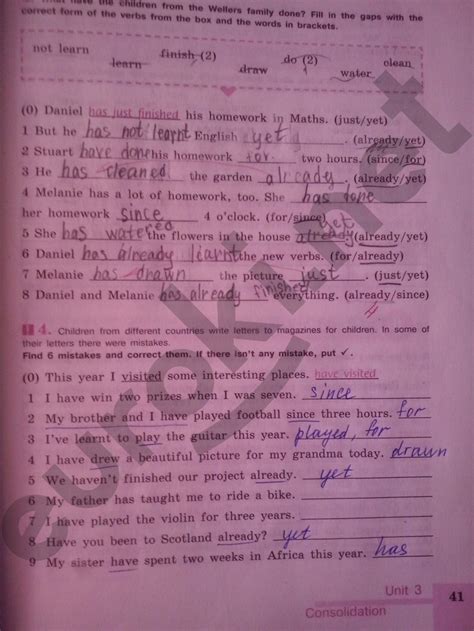 have the children from the Wellers family done? Fill in the gaps with the
correct form of the verbs from the box and the words in brackets.
not learn finish (2) do (2) clean
learn draw water
(0) Daniel has just finished his homework in Maths. (just/yet)
1 But he has not learnt English yet. (already/yet)
2 Stuart have done his homework for two hours. (since/for)
3 He has cleaned the garden already. (already/yet)
4 Melanie has a lot of homework, too. She has done
her homework since 4 o'clock. (for/since)
yet
5 She has watered the flowers in the house already (already/yet)
6 Daniel has already learnt the new verbs. (for/already)
7 Melanie has drawn the picture just. (just/yet)
8 Daniel and Melanie has already finished everything. (already/since)
4
4. Children from different countries write letters to magazines for children. In some of
their letters there were mistakes.
Find 6 mistakes and correct them. If there isn't any mistake, put ✓.
(0) This year I visited some interesting places. have visited
1 I have win two prizes when I was seven. since
2 My brother and I have played football since three hours. for
3 I've learnt to play the guitar this year. played, for
4 I have drew a beautiful picture for my grandma today. drawn
5 We haven't finished our project already. yet
6 My father has taught me to ride a bike.
7 I have played the violin for three years.
8 Have you been to Scotland already? yet
9 My sister have spent two weeks in Africa this year. has
Unit 3
Consolidation
41
euroki.net